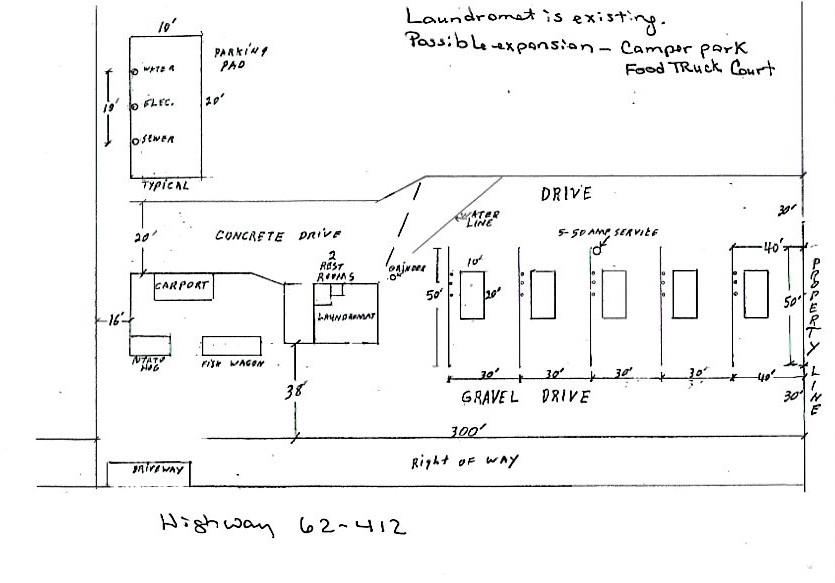 Laundromat is existing.
Possible expansion - Camper park
Food Truck Court
10'
PARKING
PAD
WATER
10'
ELEC.
20'
SEWER
TYPICAL
DRIVE
WATER
LINE
30'
20'
CONCRETE DRIVE
5-50 AMP SERVICE
2
REST
ROOMS
GRINDER
40'
CARPORT
10'
50'
20'
50'
16'
LAUNDROMAT
HOG
FISH WAGON
PROPERTY LINE
30'
30'
30'
30'
40'
38'
GRAVEL DRIVE
30'
300'
Right OF WAY
DRIVEWAY
Highway 62-412